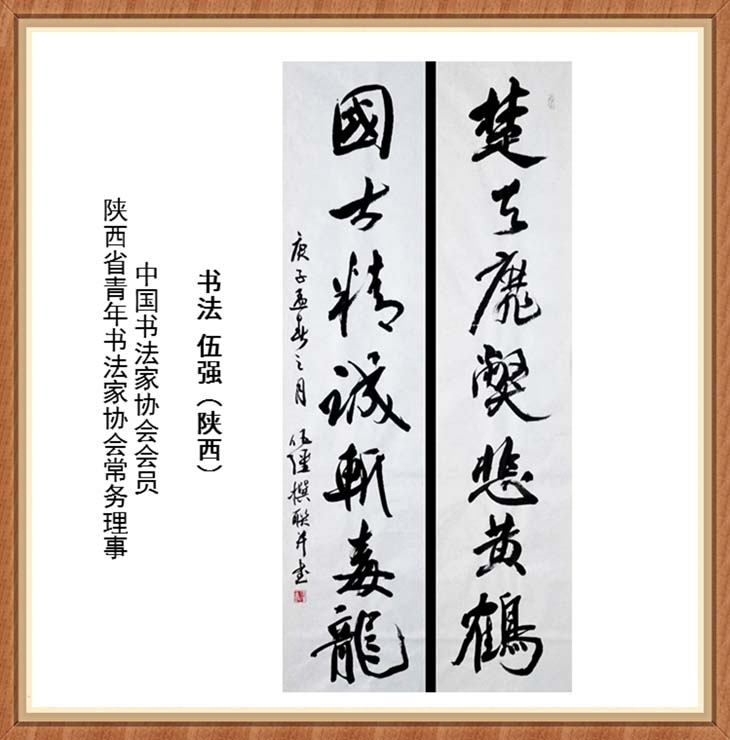 楚天悲黄鶴
國士精誠斬毒龍
庚子孟春之月
伍強撰聯并书
书法 伍强（陕西）
中国书法家协会会员
陕西省青年书法家协会常务理事